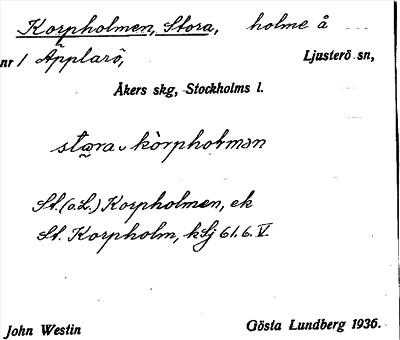 Korpholmen, Stora, holme å
nr 1 Äpplarö, Ljusterö sn,
Åkers skg, Stockholms l.
kòrpholmən
St. (o.L.) Korpholmen, ek
St. Korpholm, kSj 61.6.V.
John Westin Gösta Lundberg 1936.